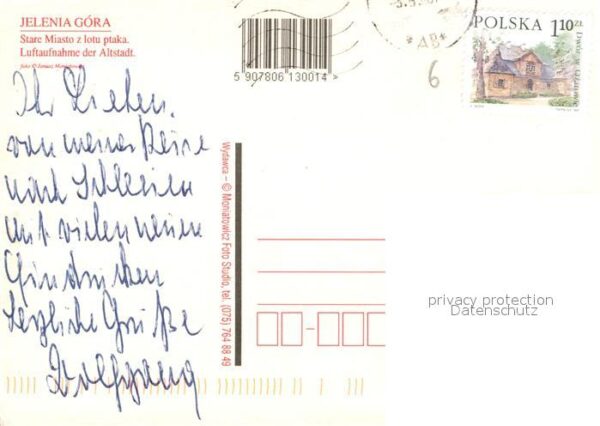 JELENIA GÓRA
Stare Miasto z lotu ptaka.
Luftaufnahme der Altstadt.
foto © Janusz Moniatowicz
5 907806 130014 >
*AB*
6
POLSKA 1,10 ZŁ
Ihr Lieben,
von meiner Reise
nach Schlesien
mit vielen neuen
Eindrücken
herzliche Grüße
Wolfgang
Wydawca – © Moniatowicz Foto Studio, tel. (075) 764 88 49
privacy protection
Datenschutz